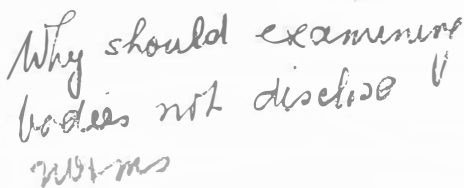 Why should examining
bodies not disclose
norms